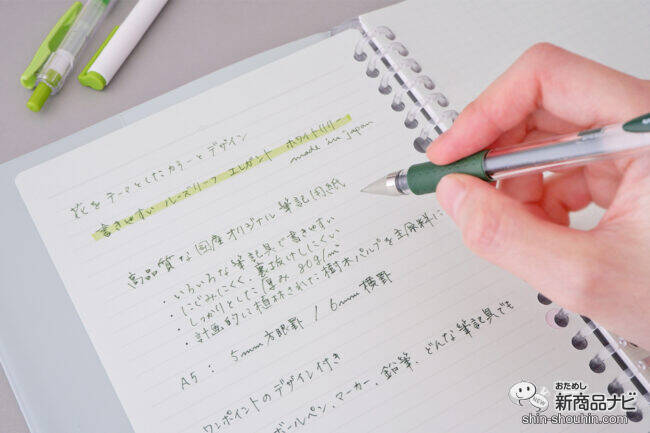 花をテーマとしたカラーとデザイン
書きやすい ルーズリーフ エレガント ホワイトリリー
made in Japan
高品質な国産オリジナル筆記用紙
・いろいろな筆記具で書きやすい
・にじみにくく、裏抜けしにくい
・しっかりとした厚み 80g/㎡
・計画的に植林された樹木パルプを主原料に
A5 : 5mm方眼罫 / 6mm横罫
ワンポイントのデザイン付き
ボールペン、マーカー、鉛筆、どんな筆記具でも
NEW
おためし
新商品ナビ
shin-shouhin.com